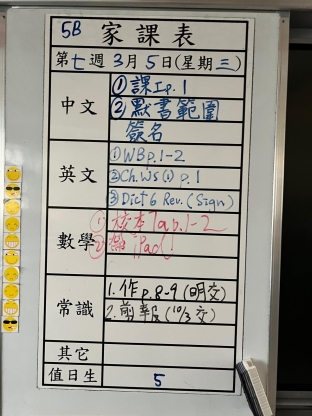 5B 家課表
第七週 3月5日(星期三)
中文 ①課工p.1
②默書範圍
簽名
英文 ①WBp.1-2
②Ch.Ws(1) p.1
③Dict 6 Rev. (Sign)
數學 ①校本7a p.1-2
② iPad!
常識 1. 作p.8-9(明交)
2. 剪報(10/3交)
其它
值日生 5